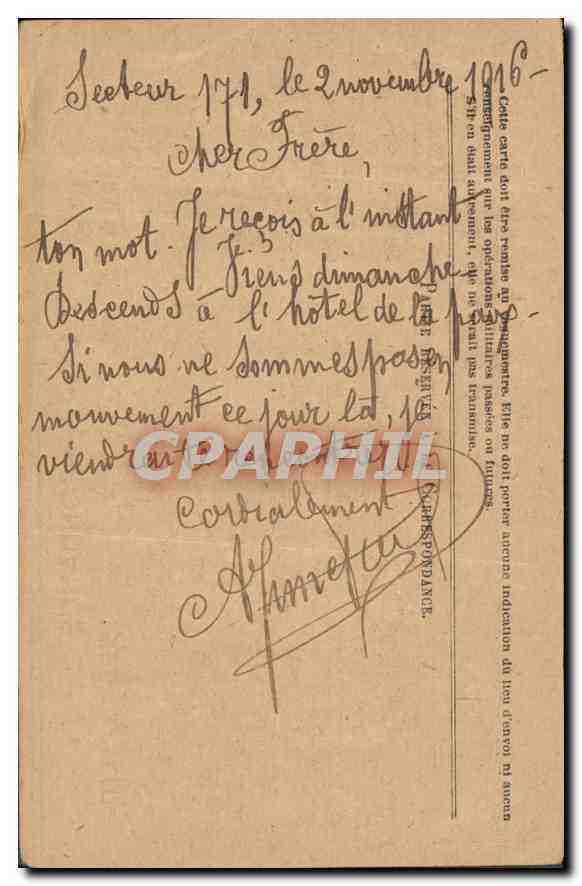 Secteur 171, le 2 novembre 1916 -
cher Frère,
Je reçois à l'instant
ton mot. Viens dimanche -
Descends à l'hôtel de la paix -
Si nous ne sommes pas en
mouvement ce jour là, je
viendrai
cordialement
PARTIE RÉSERVÉE À CORRESPONDANCE.
Cette carte doit être remise au vaguemestre. Elle ne doit porter aucune indication du lieu d'envoi ni aucun
renseignement sur les opérations militaires passées ou futures.
S'il en était autrement, elle ne serait pas transmise.
CPAPHIL